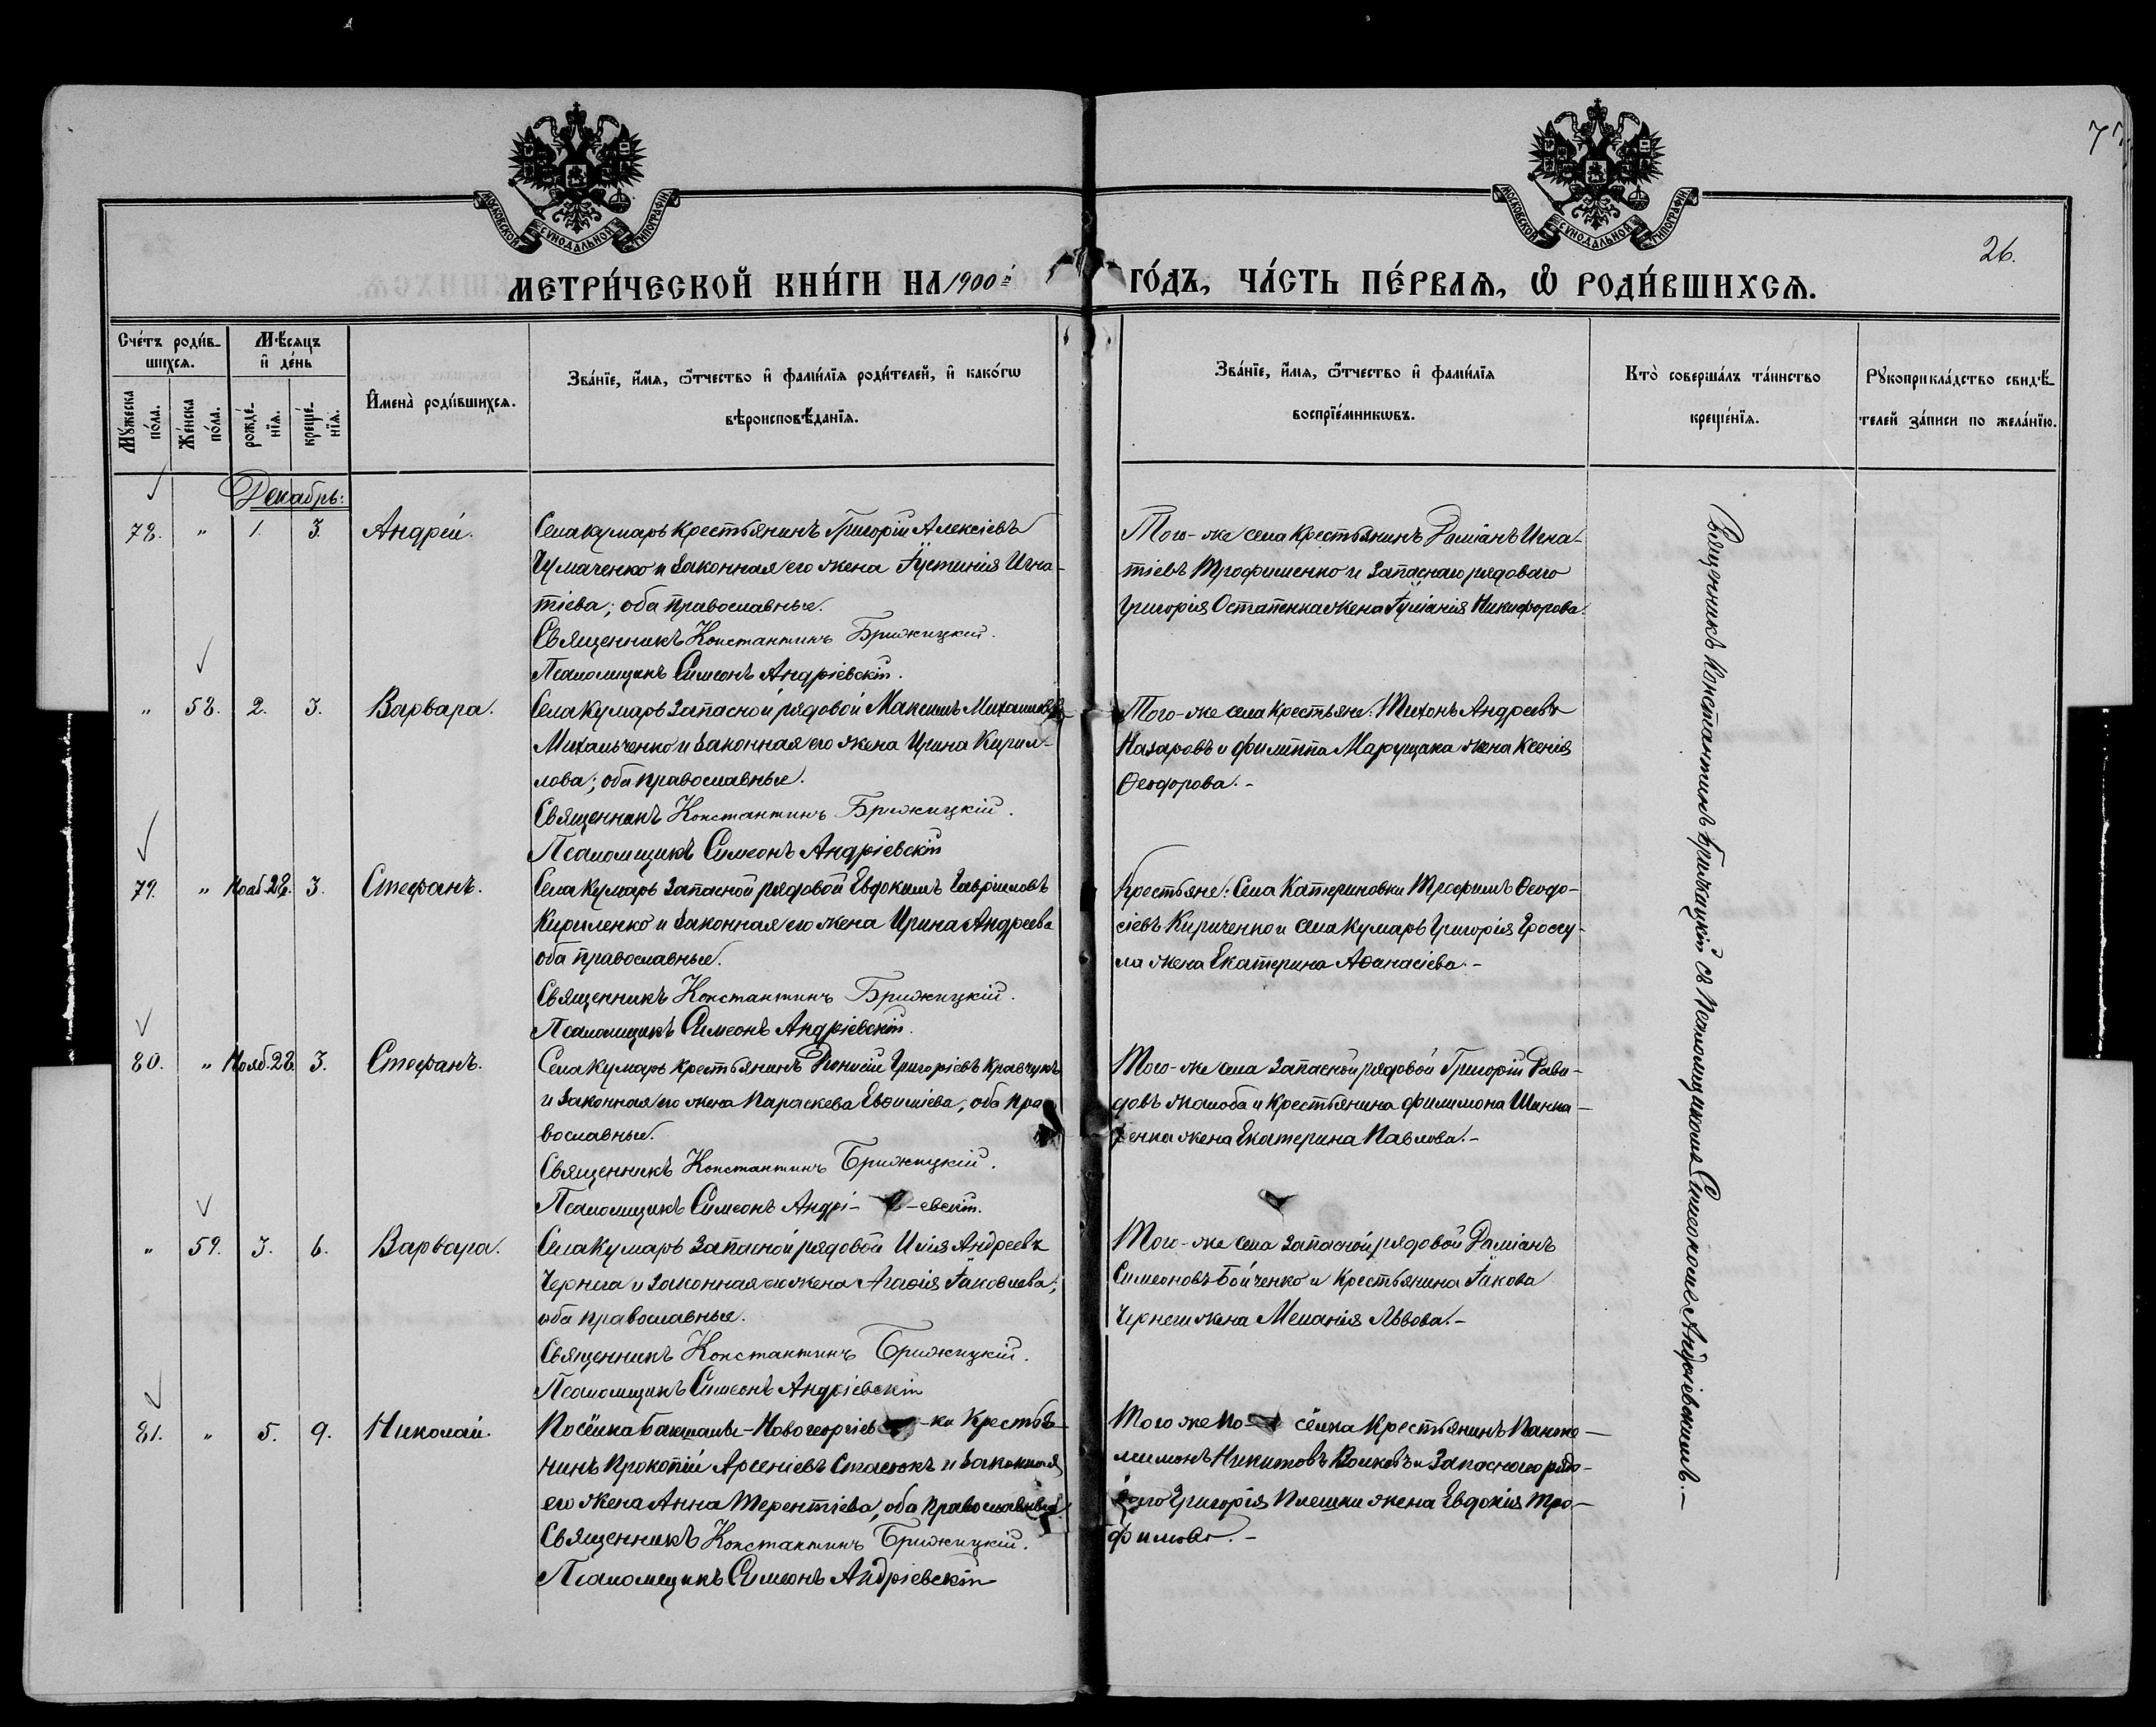 МОСКОВСКОЙ СѴНОДАЛЬНОЙ ТИПОГРАФІИ
МОСКОВСКОЙ СѴНОДАЛЬНОЙ ТИПОГРАФІИ
26.
МЕТРИ́ЧЕСКОЙ КНИ́ГИ НА 1900й ГО́ДЪ, ЧА́СТЬ ПЕ́РВАѦ, Ѡ҆ РОДИ́ВШИХСѦ.
Сче́тъ роди́в-
шихсѧ.
Мꙋжеска по́ла.
Же́нска по́ла.
Мѣ́сѧцъ
и҆ де́нь
рожде́-
нїѧ.
креще́-
нїѧ.
И҆мена̀ роди́вшихсѧ.
Зва́нїе, и҆́мѧ, ѻ҆́тчество и҆ фами́лїѧ роди́телей, и҆ како́гѡ
вѣроисповѣ́данїѧ.
Зва́нїе, и҆́мѧ, ѻ҆́тчество и҆ фами́лїѧ
воспрїе́мникѡвъ.
Кто̀ соверша́лъ та́инство
креще́нїѧ.
Рꙋкоприкла́дство свидѣ́-
телей за́писи по жела́нїю.
Декабрь:
78. " 1. 3. Андрей.
Села Кумарь крестьянинъ Григорій Алексіевъ
Чумаченко и законная его жена Іустинія Игна-
тіева; оба православные.
Священникъ Константинъ Брижицкій.
Псаломщикъ Симеонъ Андріевскій.
Того-же села крестьянинъ Даміанъ Игна-
тіевъ Трофименко и запаснаго рядоваго
Григорія Остапенка жена Іуліанія Никифорова.
" 58. 2. 3. Варвара.
Села Кумарь запасной рядовой Максимъ Михаиловъ
Михальченко и законная его жена Ирина Кирил-
лова; оба православные.
Священникъ Константинъ Брижицкій.
Псаломщикъ Симеонъ Андріевскій
Того-же села крестьяне: Тихонъ Андреевъ
Назаровъ и Филиппа Марущака жена Ксенія
Ѳеодорова. -
79. " Нояб. 28. 3. Стефанъ.
Села Кумарь запасной рядовой Евдокимъ Гавріиловъ
Кириленко и законная его жена Ирина Андреева
оба православные.
Священникъ Константинъ Брижицкій.
Псаломщикъ Симеонъ Андріевскій.
Крестьяне: Села Катериновки Трофимъ Ѳеодо-
сіевъ Кириченко и села Кумарь Григорія Гроссу-
ла жена Екатерина Аѳанасіева. -
80. " Нояб. 28. 3. Стефанъ.
Села Кумарь крестьянинъ Діонисій Григоріевъ Кравчукъ
и законная его жена Параскева Евѳиміева; оба пра
вославные.
Священникъ Константинъ Брижицкій.
Псаломщикъ Симеонъ Андрі- -евскій.
Того-же села запасной рядовой Григорій Дави-
довъ Жалоба и крестьянина Филимона Шинка-
ренка жена Екатерина Павлова. -
" 59. 3. 6. Варвара.
Села Кумарь запасной рядовой Илія Андреевъ
Чернега и законная его жена Агаѳія Іаковлева;
оба православные.
Священникъ Константинъ Брижицкій.
Псаломщикъ Симеонъ Андріевскій
Того-же села запасной рядовой Даміанъ
Симеоновъ Бойченко и крестьянина Іакова
Чернеги жена Меланія Львова. -
81. " 5. 9. Николай.
Посёлка Бакшалы-Новогеоргіев -ка крестья-
нинъ Прокопій Арсеніевъ Стасюкъ и законная
его жена Анна Терентіева, оба православные.
Священникъ Константинъ Брижицкій.
Псаломщикъ Симеонъ Андріевскій
Того же по- сёлка крестьянинъ Панте-
лимонъ Никитовъ Волковъ и запаснаго рядо-
ваго Григорія Плешки жена Евдокія Тро-
фимова. -
Священникъ Константинъ Брижицкій съ Псаломщикомъ Симеономъ Андріевскимъ. -